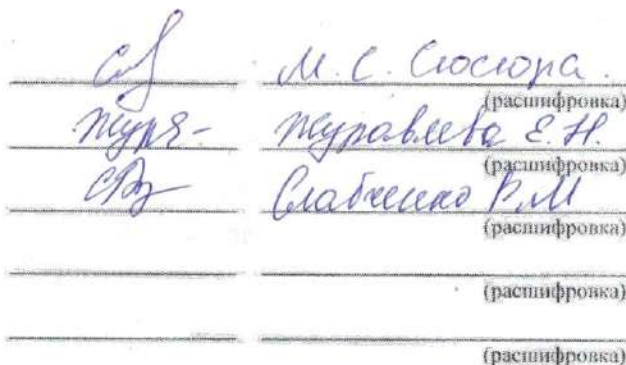 М. С. Сюсюра.
(расшифровка)
Журавлева Е.Н.
(расшифровка)
Слабченко Р.М
(расшифровка)
(расшифровка)
(расшифровка)